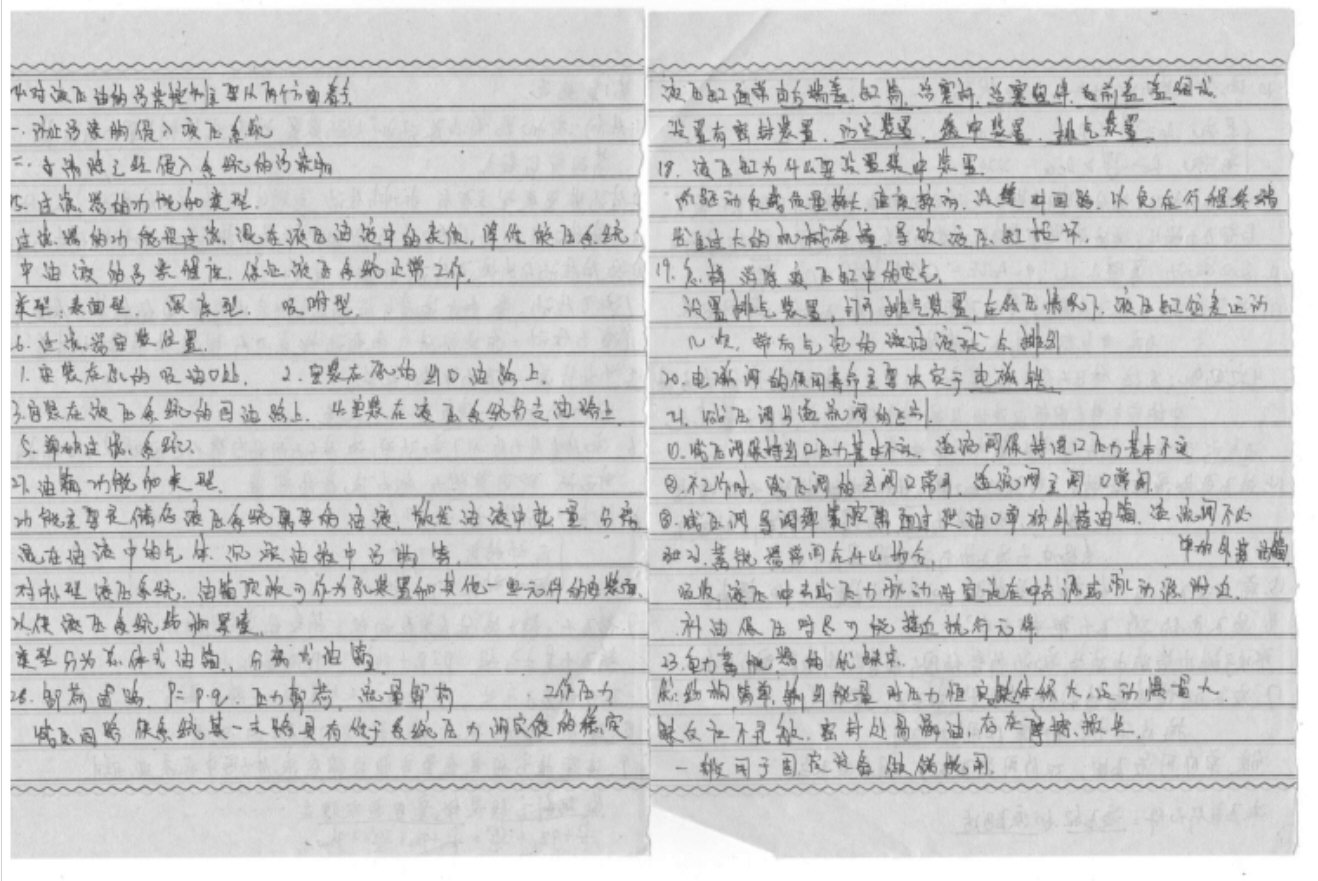 24.对液压油的污染控制主要从两个方面着手.
一.防止污染物侵入液压系统
二.清除已经侵入系统的污染物
25.过滤器的功能和类型.
过滤器的功能是过滤混在液压油液中的杂质,降低液压系统
中油液的污染程度.保证液压系统正常工作.
类型:表面型. 深度型. 吸附型.
26.过滤器安装位置.
1.安装在泵的吸油口处. 2.安装在泵的出口油路上.
3.安装在液压系统的回油路上. 4.安装在液压系统分支油路上
5.单独过滤系统.
27.油箱功能和类型.
功能主要是储存液压系统需要的油液.散发油液中热量 分离
混在油液中的气体.沉淀油液中污物等.
对小型液压系统.油箱顶板可作为泵装置和其他一些元件的安装面.
以使液压系统结构紧凑.
类型分为总体式油箱、分离式油箱
28.卸荷回路 P=p·q. 压力卸荷、流量卸荷 工作压力
减压回路 使系统某一支路具有低于系统压力调定值的稳定
液压缸通常由后端盖.缸筒.活塞杆.活塞组件.前端盖组成.
设置有密封装置.防尘装置.缓冲装置.排气装置
18.液压缸为什么要设置缓冲装置
所驱动负载质量较大.速度较高. 以免在行程终端
发生过大的机械碰撞.导致液压缸损坏.
19.怎样消除液压缸中的空气
设置排气装置,打开排气装置,在低压情况下.液压缸往复运动
几次.带有气泡的油液 排出
20.电磁阀的使用寿命主要决定于电磁铁.
21.减压阀与溢流阀的区别.
①.减压阀保持出口压力基本不变.溢流阀保持进口压力基本不变
②.不工作时.减压阀的主阀口常开.溢流阀主阀口常闭.
③.减压阀导阀弹簧腔需通过泄油口单独外接油箱.溢流阀不必
单独外接油箱
22.蓄能器常用在什么场合.
吸收液压冲击或压力脉动时宜放在冲击源或脉动源附近.
补油保压时尽可能接近执行元件
23.重力蓄能器的优缺点.
优:结构简单.输出能量时压力恒定.缺:体积大,运动惯量大
缺反应不灵敏.密封处易漏油.存在摩擦损失.
一般用于固定设备做储能用.